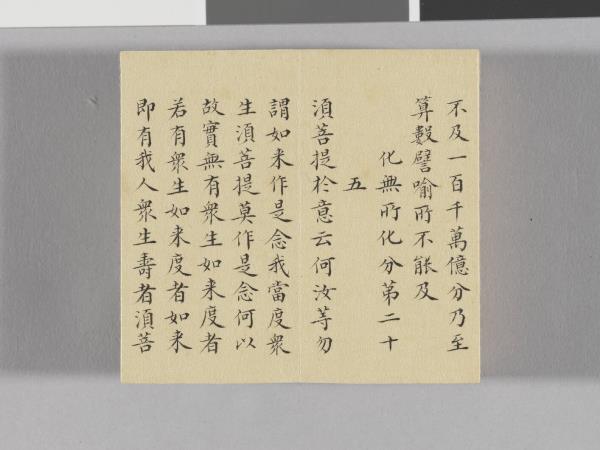 不及一百千萬億分乃至
算數譬喻所不能及
化無所化分第二十
五
須菩提於意云何汝等勿
謂如来作是念我當度衆
生須菩提莫作是念何以
故實無有衆生如来度者
若有衆生如来度者如来
即有我人衆生壽者須菩